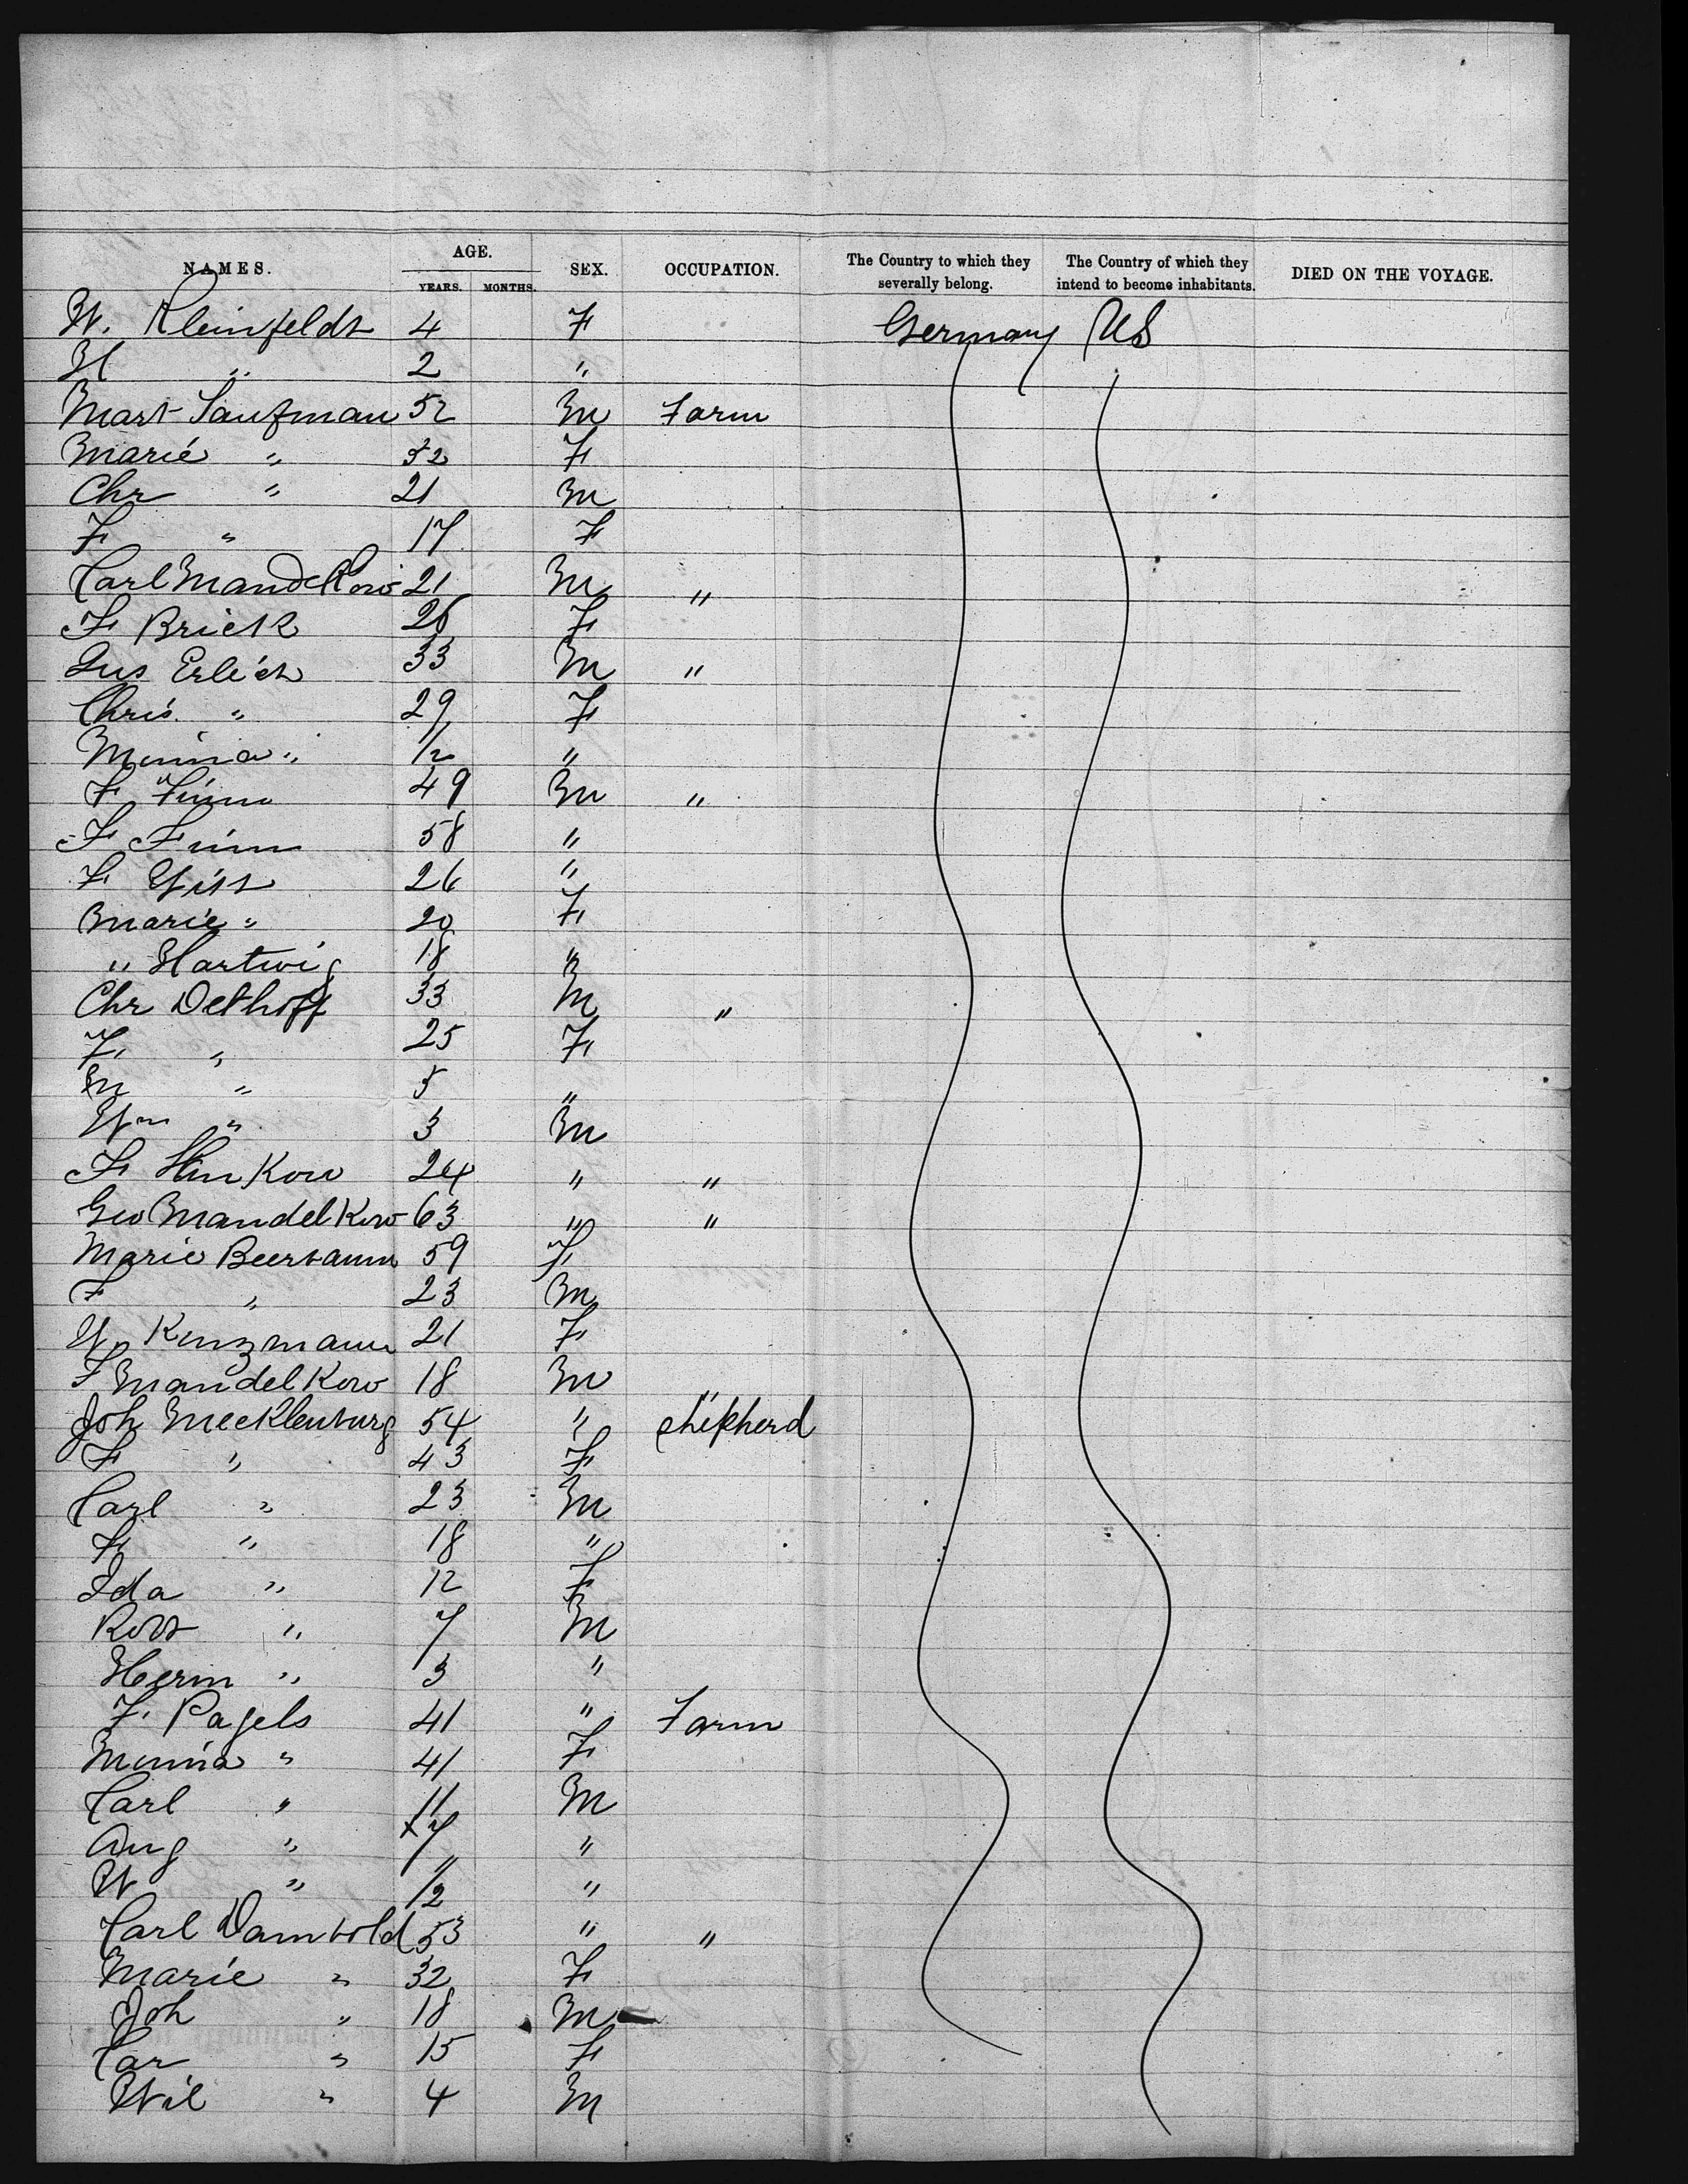 NAMES. AGE. SEX. OCCUPATION. The Country to which they severally belong. The Country of which they intend to become inhabitants. DIED ON THE VOYAGE.
YEARS. MONTHS.
W. Kleinfeldt 4 F Germany US
H " 2 "
Mart Saufman 52 M Farm
Marie " 52 F
Chr " 21 M
F " 17 F
Carl Mandelkow 21 M "
F Brick 26 F
Gus Erlich 33 M "
Chris. " 29 F
Minna " 1/2 "
F 49 M "
F 58 "
F 26 "
Marie " 20 F
" Hartwig 18 "
Chr Dethoff 33 M "
F " 25 F
M " 5 "
Wm " 3 M
F Hinkow 24 " "
Geo Mandelkow 63 " "
Marie Beerbaum 59 F
F " 23 M
W Kunzmann 21 F
F Mandelkow 18 M "
Joh Mecklenburg 54 " shepherd
F " 43 F
Carl " 23 M
F " 18 "
Ida " 12 F
Robt " 7 M
Herm " 3 "
F. Pagels 41 " Farm
Minna " 41 F
Carl " 11 M
Aug " 7 "
W " 11/12 "
Carl Dambold 53 " "
Marie " 32 F
Joh " 18 M
Car " 15 F
Wil " 4 M